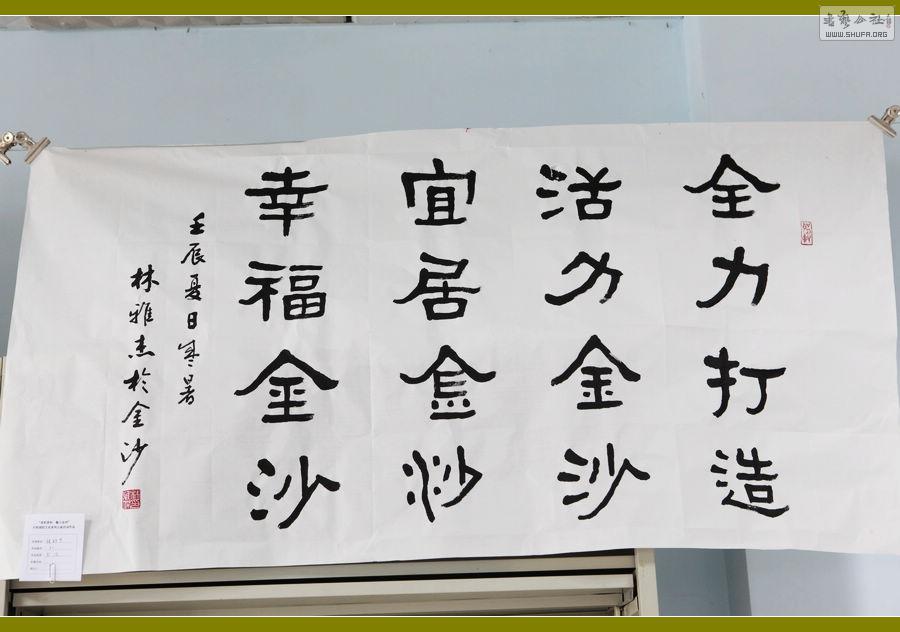 全力打造
活力金沙
宜居金沙
幸福金沙
壬辰夏日寒暑
林雅杰於金沙
书艺公社
WWW.SHUFA.ORG